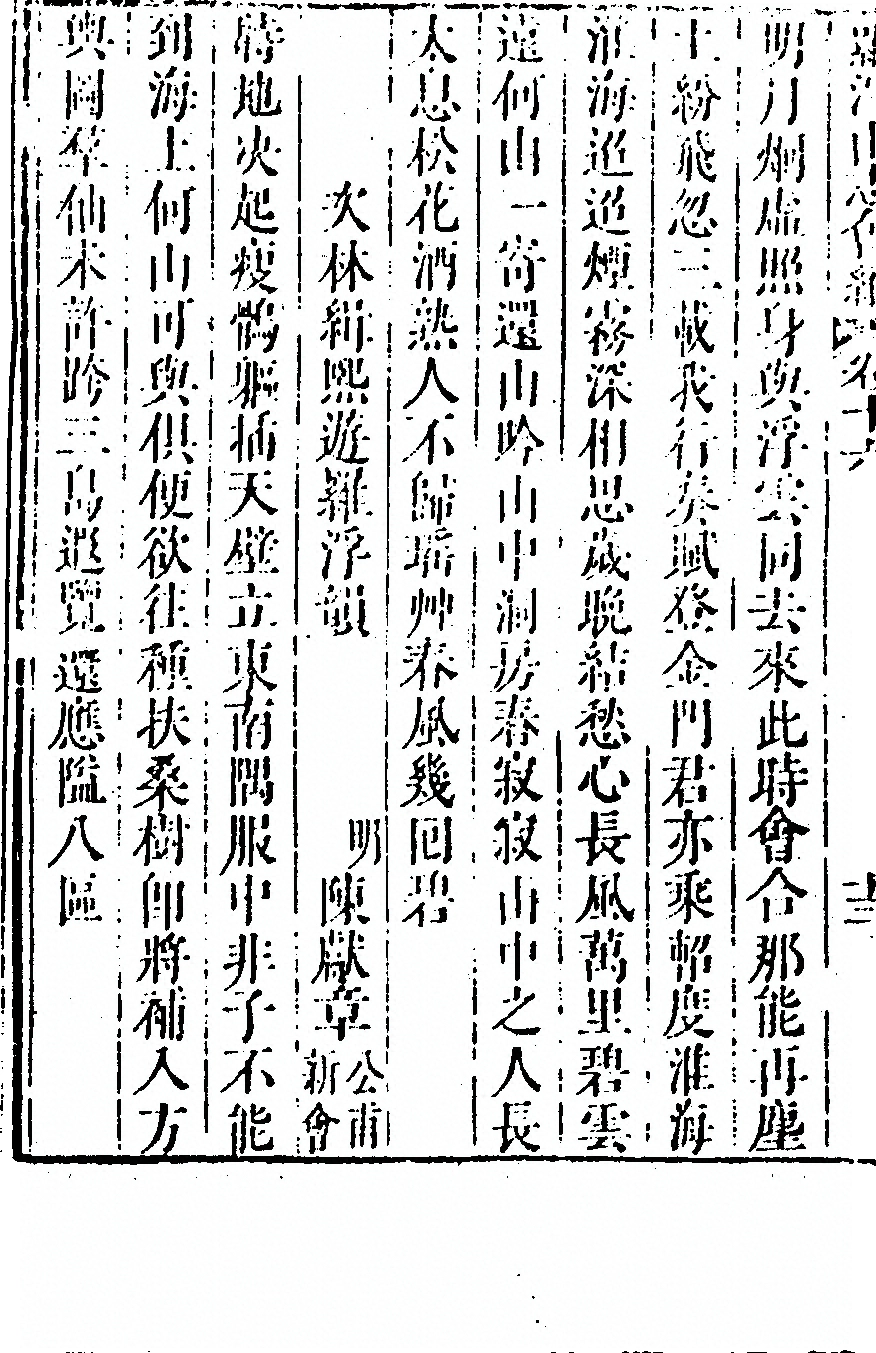 羅浮山志會編 卷十六 十三
明月烱虛照身與浮雲同去來此時會合那能再塵
土紛飛忽三載我行奏賦登金門君亦乘軺度淮海
淮海迢迢煙霧深相思歲晚結愁心長風萬里碧雲
遠何由一寄還山吟山中洞房春寂寂山中之人長
太息松花酒熟人不歸瑤艸春風幾回碧
次林緝熙遊羅浮韻 明陳獻章公甫新會
特地夾起瘦鶴軀插天壁立東南隅服中非子不能
到海上何山可與俱便欲往種扶桑樹卽將補入方
輿圖羣仙未許跨三島遐覽還應隘八區